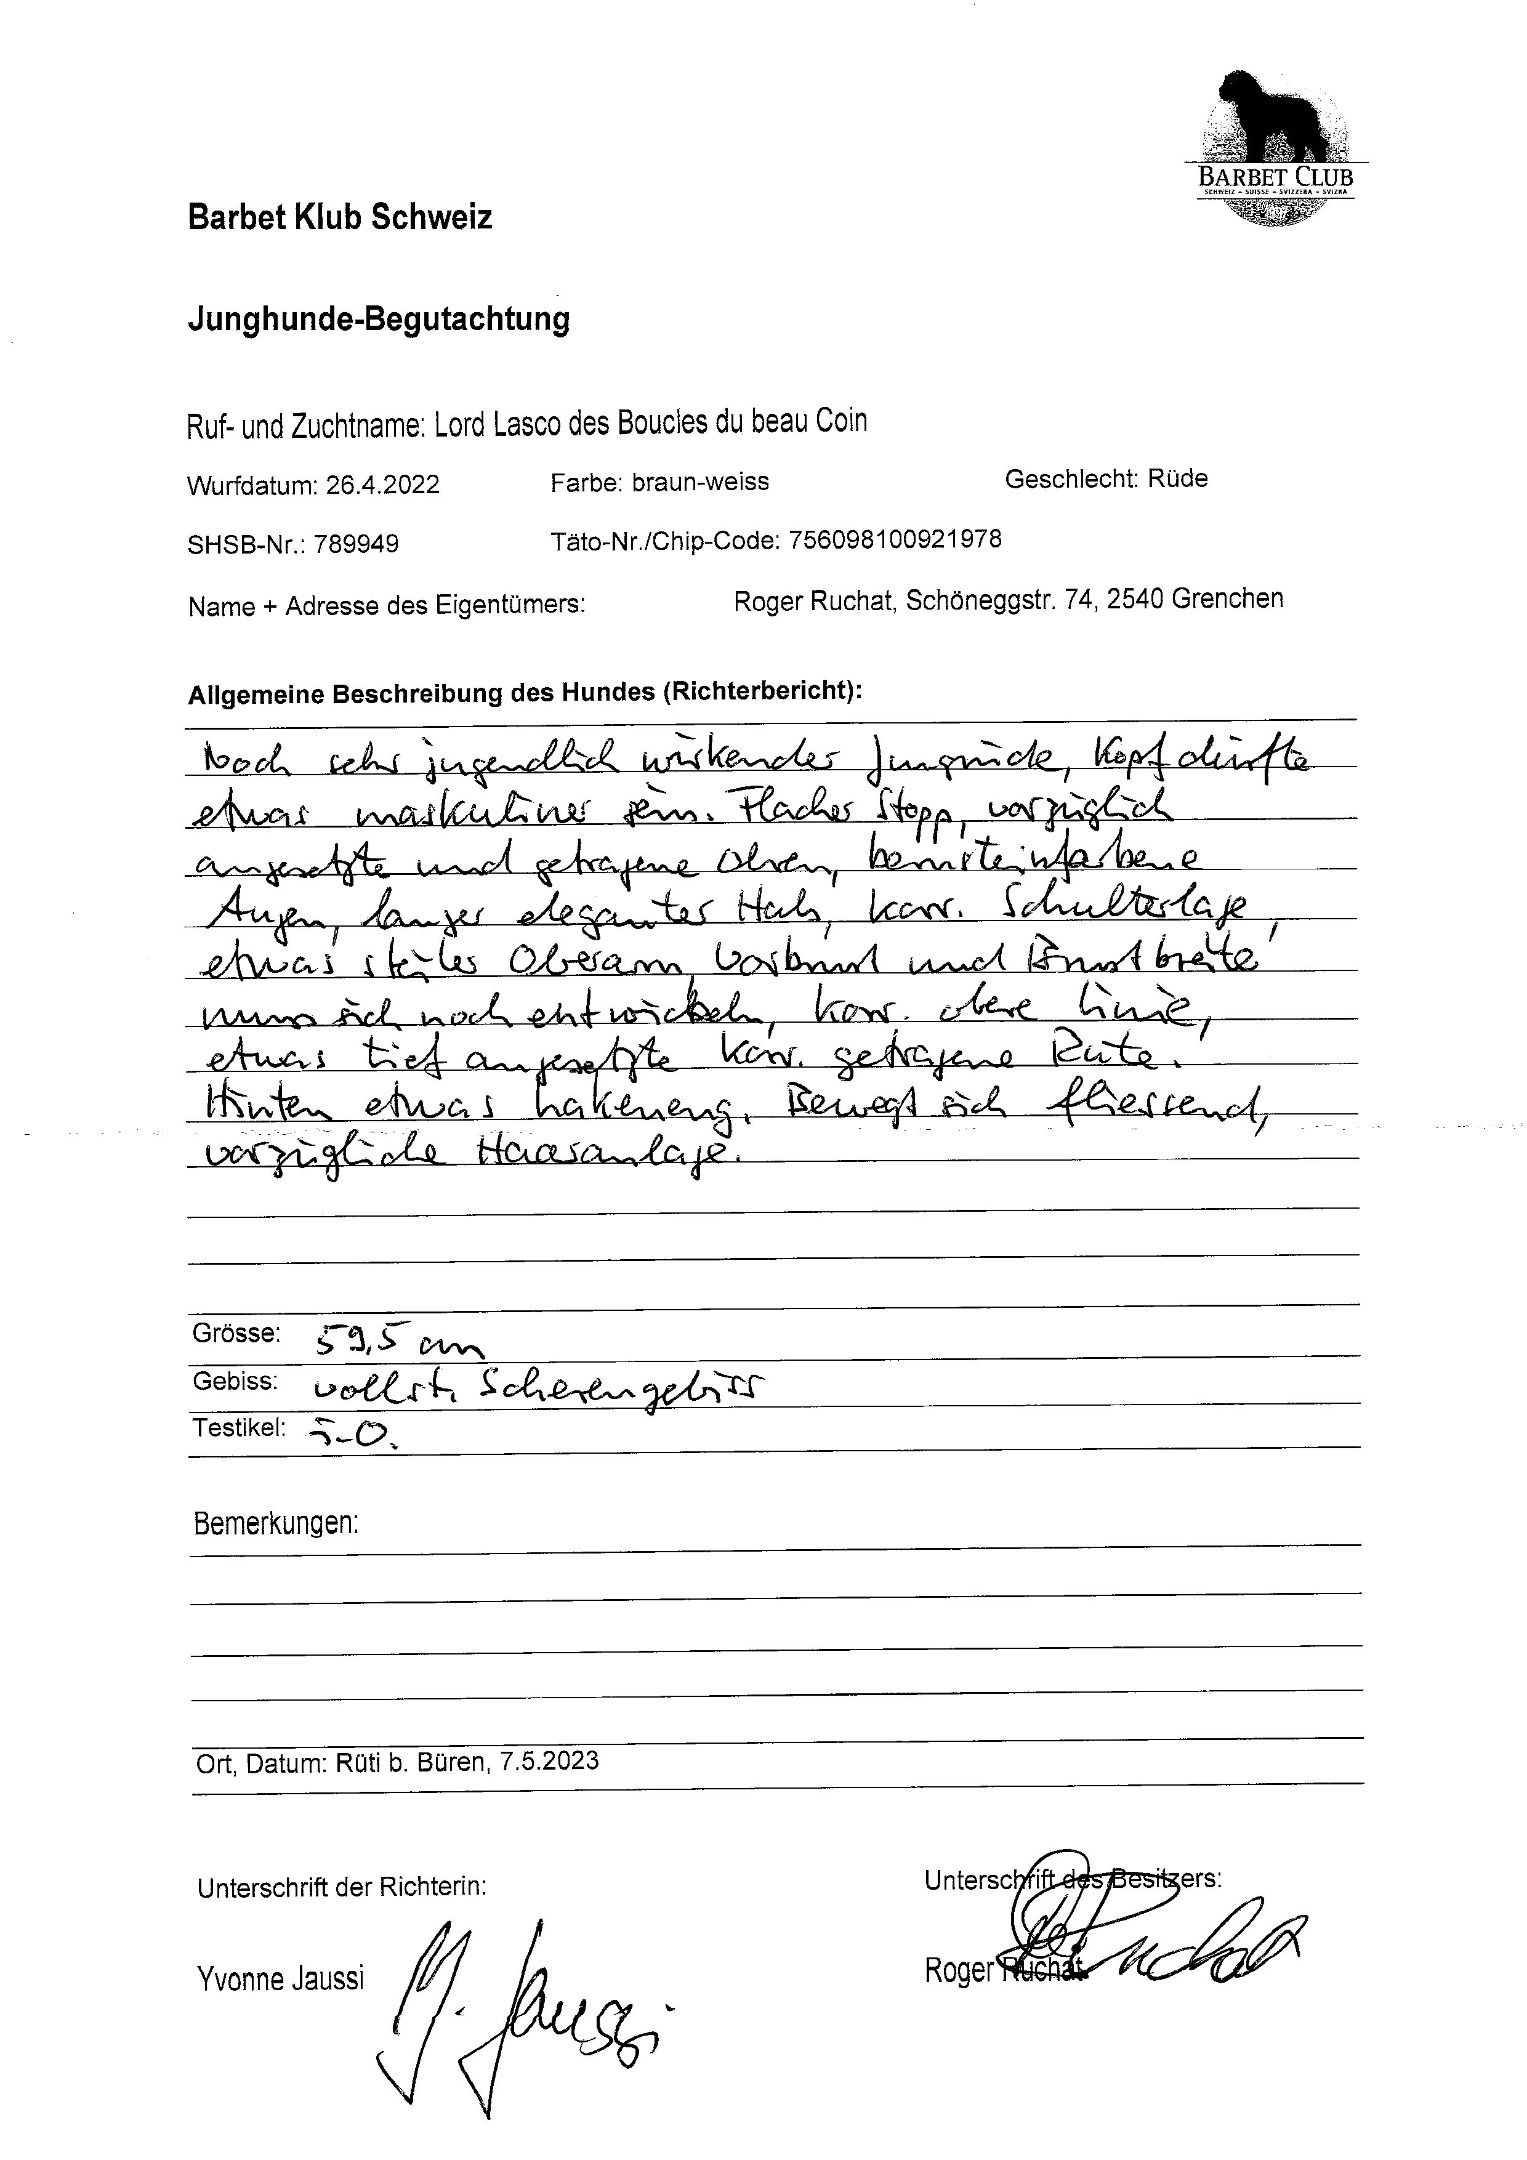 BARBET CLUB
SCHWEIZ – SUISSE – SVIZZERA – SVIZRA
Barbet Klub Schweiz
Junghunde-Begutachtung
Ruf- und Zuchtname: Lord Lasco des Boucles du beau Coin
Wurfdatum: 26.4.2022 Farbe: braun-weiss Geschlecht: Rüde
SHSB-Nr.: 789949 Täto-Nr./Chip-Code: 756098100921978
Name + Adresse des Eigentümers: Roger Ruchat, Schöneggstr. 74, 2540 Grenchen
Allgemeine Beschreibung des Hundes (Richterbericht):
Noch sehr jugendlich wirkender Jungrüde, Kopf dürfte
etwas maskuliner sein. Flacher Stopp, vorzüglich
angesetzte und getragene Ohren, bernsteinfarbene
Augen, langer eleganter Hals, korr. Schulterlage,
etwas steiler Oberarm, Vorbrust und Brustbreite
muss sich noch entwickeln, korr. obere Linie,
etwas tief angesetzte korr. getragene Rute.
Hinten etwas hakeneng. Bewegt sich fliessend,
vorzügliche Haaranlage.
Grösse: 59,5 cm
Gebiss: vollst. Scherengebiss
Testikel: i.O.
Bemerkungen:
Ort, Datum: Rüti b. Büren, 7.5.2023
Unterschrift der Richterin: Unterschrift des Besitzers:
Yvonne Jaussi Y. Jaussi Roger Ruchat R. Ruchat